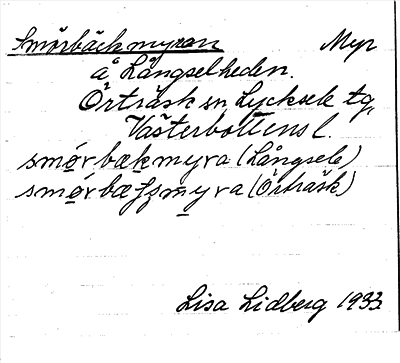 Smörbäckmyran Myr
å Långselheden.
Örträsk sn Lycksele tg,
Västerbottens l.
smørbækmyra (Långsele)
smørbæʃsmyra (Örträsk)
Lisa Lidberg 1933